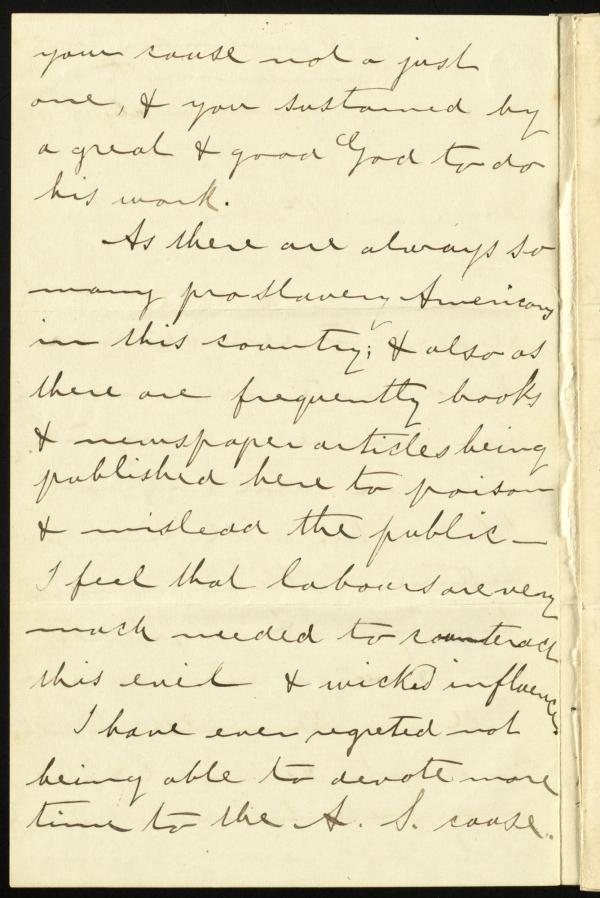 your cause not a just
one, & you sustained by
a great & good God to do
his work.
As there are always so
many pro slavery Americans
in this country; & also as
there are frequently books
& newspaper articles being
published here to poison
& mislead the public —
I feel that labours are very
much needed to counteract
this evil & wicked influences
I have ever regreted not
being able to devote more
time to the A. S. cause.